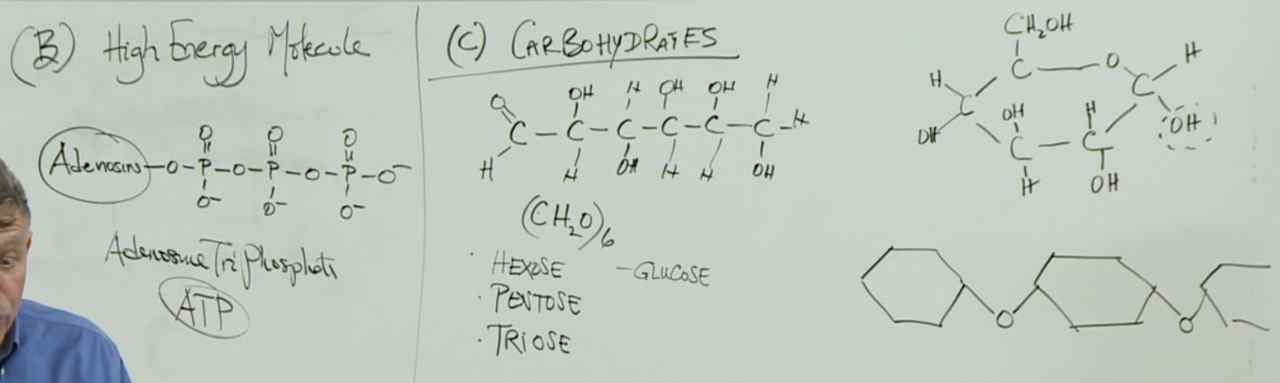 (B) High Energy Molecule
Adenosine-O-P-O-P-O-P-O⁻
O O O
O⁻ O⁻ O⁻
Adenosine Tri Phosphate
ATP
(C) CARBOHYDRATES
O OH H OH OH H
C-C-C-C-C-C-H
H H OH H H OH
(CH₂O)₆
· HEXOSE -GLUCOSE
· PENTOSE
· TRIOSE
CH₂OH
C O H
H C C
OH OH H OH
C C
H OH
O O